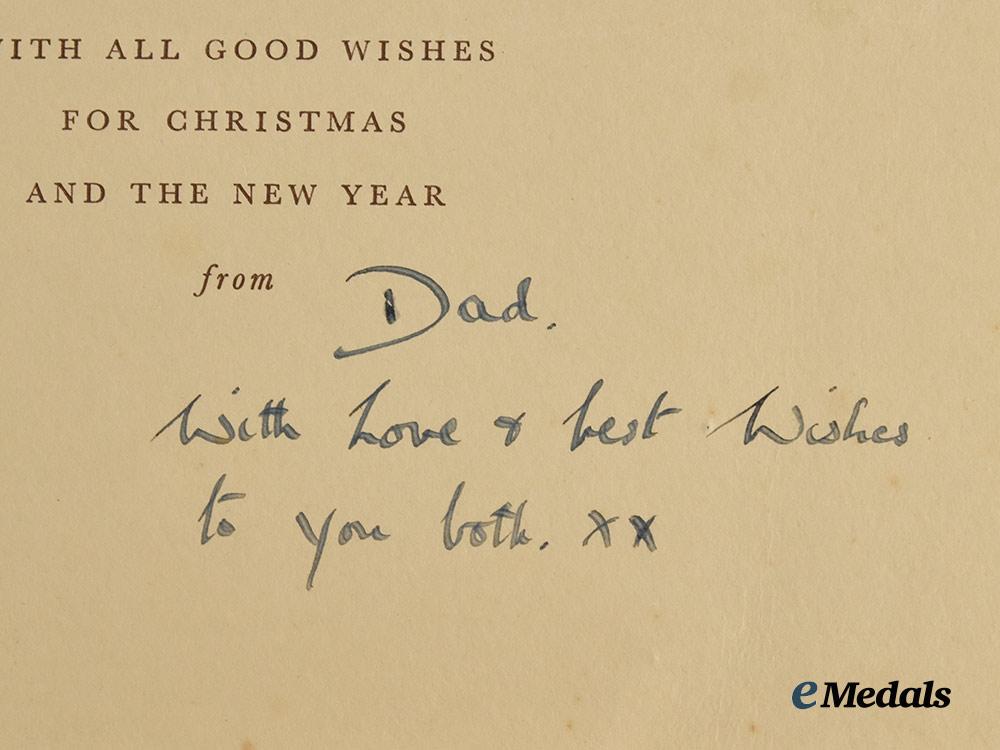 WITH ALL GOOD WISHES
FOR CHRISTMAS
AND THE NEW YEAR
from Dad.
With Love & best Wishes
to you both. xx
eMedals